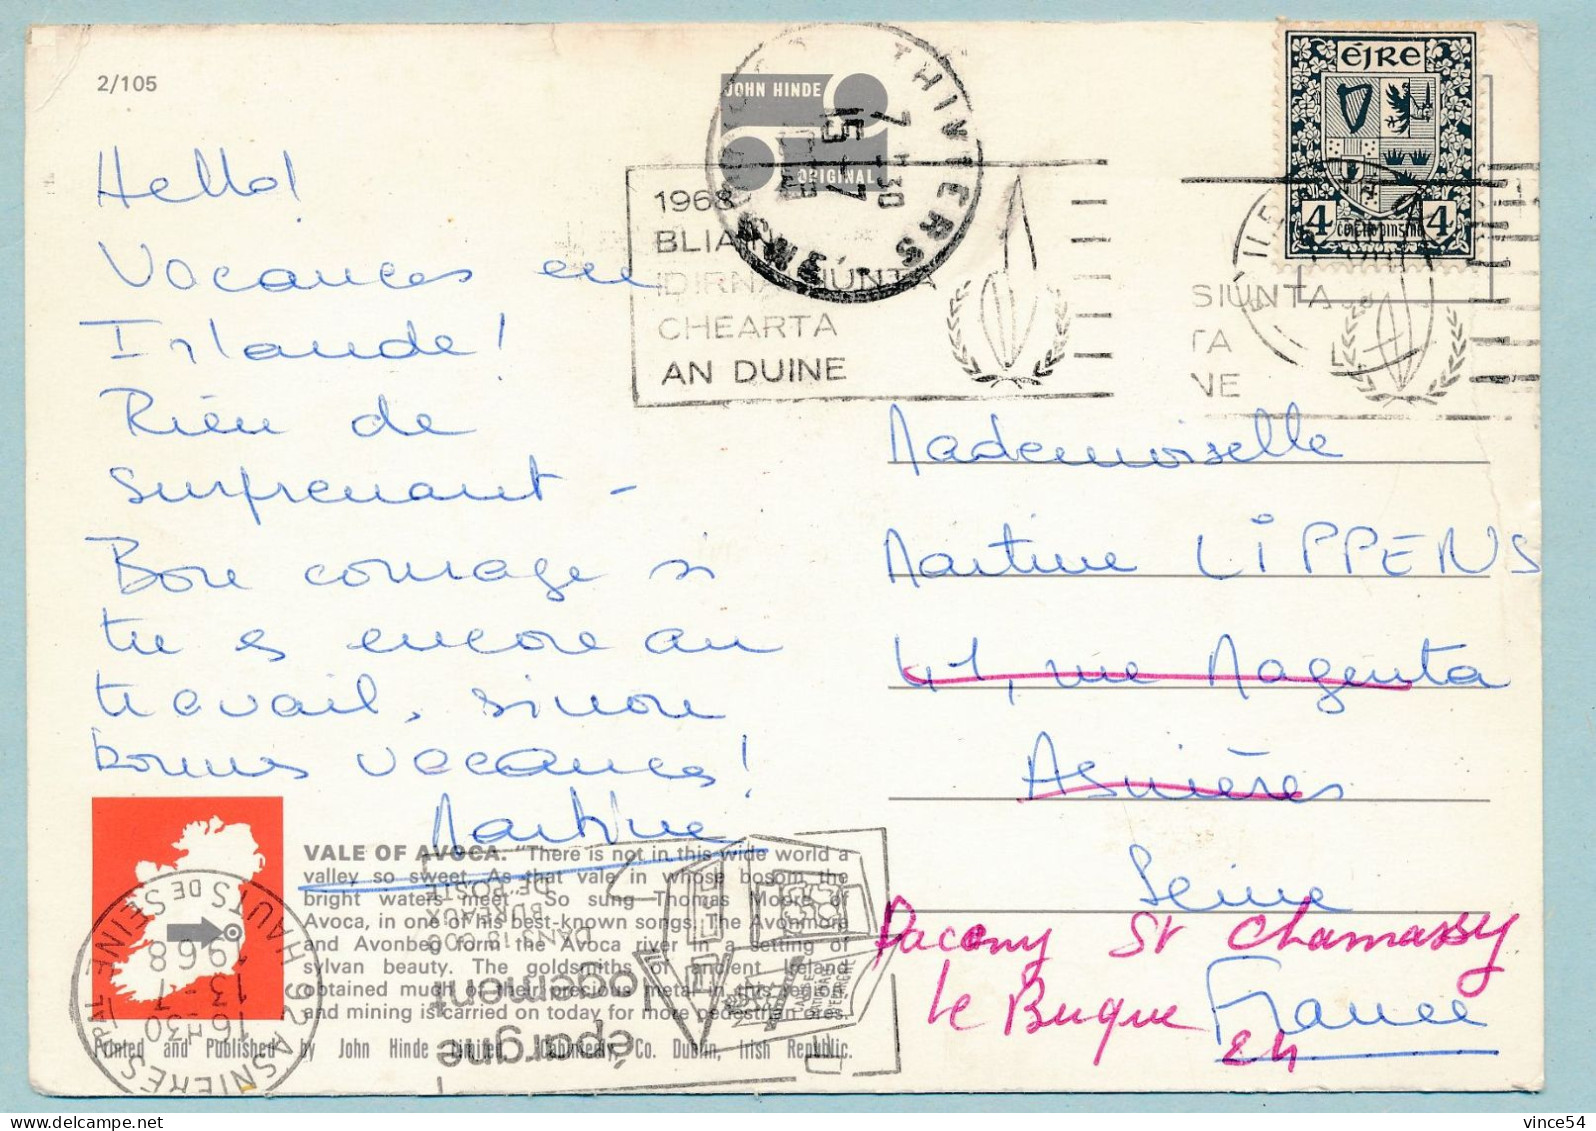 2/105
JOHN HINDE
ORIGINAL
THIVIERS
7 H 30
15-7
1968
BLIAIN
IDIRNAISIÚNTA
CHEARTA
AN DUINE
SIÚNTA
TA
NE
éIRe
4 4
Hello!
Vacances en
Irlande!
Rien de
surprenant -
Bon courage si
tu es encore au
travail, sinon
bonnes vacances!
Martine
Mademoiselle
Martine LIPPENS
41, rue Magenta
Asnières
Seine
France
St Chamassy
Le Bugue
24
VALE OF AVOCA. "There is not in this wide world a
valley so sweet, As that vale in whose bosom the
bright waters meet". So sung Thomas Moore of
Avoca, in one of his best-known songs. The Avonmore
and Avonbeg form the Avoca river in a setting of
sylvan beauty. The goldsmiths of ancient Ireland
obtained much of their precious metal in this region,
and mining is carried on today for more pedestrian ores.
Printed and Published by John Hinde Limited, Cabinteely, Co. Dublin, Irish Republic.
92 ASNIERES PAL
HAUTS DE SEINE
16H30
13-7
1968
épargne
logement
DANS LES
BUREAUX
DE POSTE
vince54